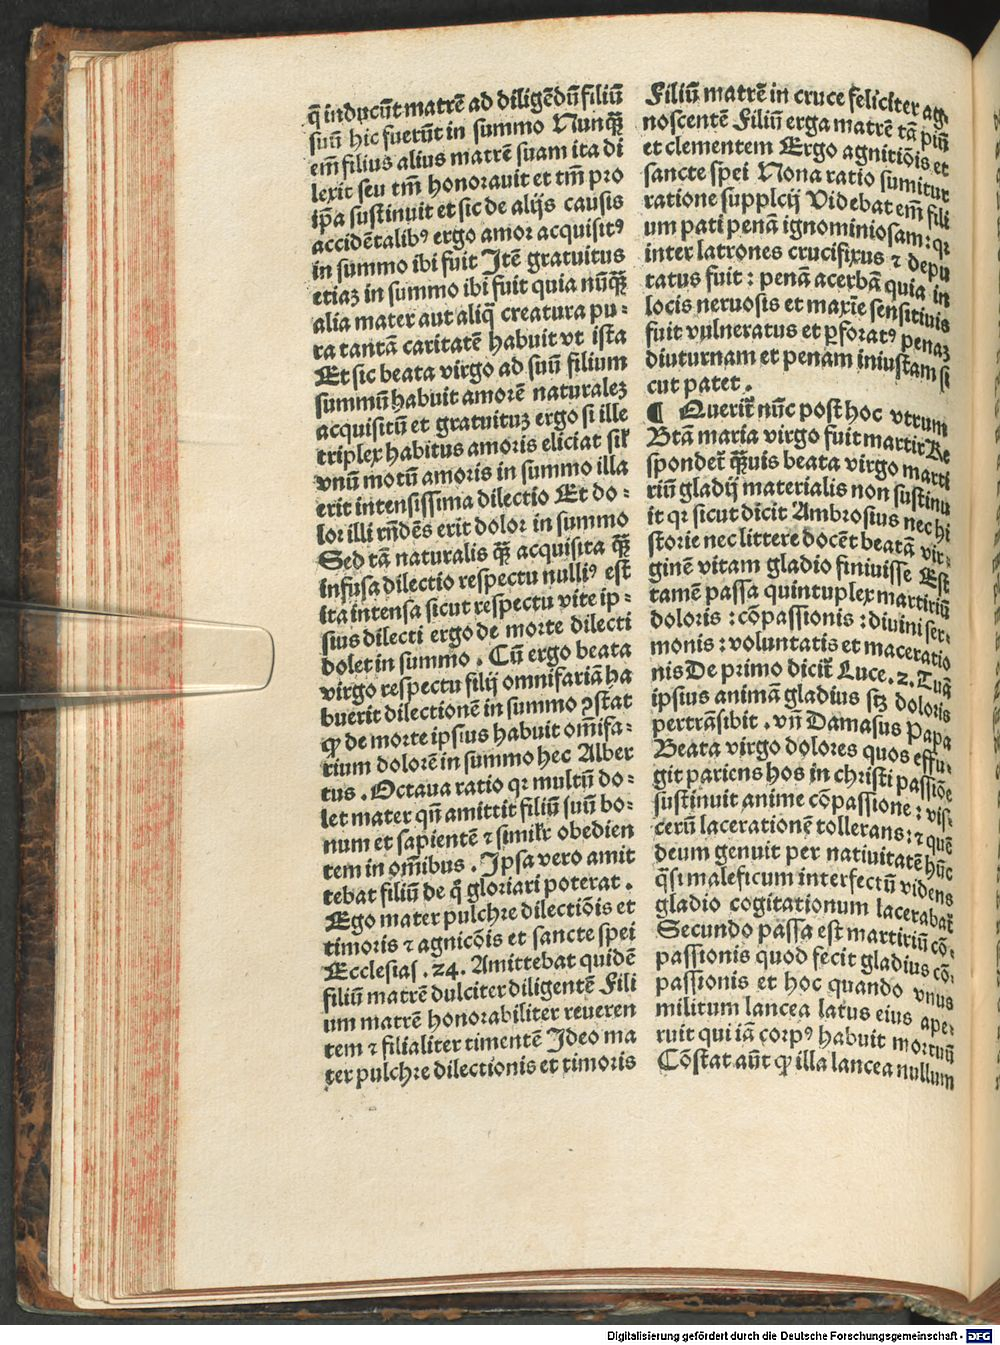 q̄ inducūt matrē ad diligēdū filiū
suū hic fuerūt in summo Nunq̄ꝫ
em̄ filius alius matrē suam ita di
lexit seu tm̄ honorauit et tm̄ pro
ip̄a sustinuit et sic de alijs causis
accidētalibꝰ ergo amor acquisitꝰ
in summo ibi fuit Itē gratuitus
etiaꝫ in summo ibi fuit quia nūq̄ꝫ
alia mater aut aliq̄ creatura pu-
ra tantā caritatē habuit vt ista
Et sic beata virgo ad suū filium
summū habuit amorē naturaleꝫ
acquisitū et gratuituꝫ ergo si ille
triplex habitus amoris eliciat sil̄
vnū motū amoris in summo illa
erit intensissima dilectio Et do-
lor illi rn̄dēs erit dolor in summo
Sed tā naturalis q̄ꝫ acquisita q̄ꝫ
infusa dilectio respectu nulliꝰ est
ita intensa sicut respectu vite ip-
sius dilecti ergo de morte dilecti
dolet in summo . Cū ergo beata
virgo respectu filij omnifariā ha
buerit dilectionē in summo ꝯstat
ꝙ de morte ipsius habuit om̄ifa-
rium dolorē in summo hec Alber
tus . Octaua ratio qꝛ multū do-
let mater qn̄ amittit filiū suū bo-
num et sapientē ⁊ simil̄r obedien
tem in om̄ibus . Ipsa vero amit
tebat filiū de q̄ gloriari poterat .
Ego mater pulchre dilectiōis et
timoris ⁊ agnicōis et sancte spei
Ecclesias .24. Amittebat quidē
filiū matrē dulciter diligentē Fili
um matrē honorabiliter reueren
tem ⁊ filialiter timentē Ideo ma
ter pulchre dilectionis et timoris
Filiū matrē in cruce feliciter ag-
noscentē Filiū erga matrē tā piū
et clementem Ergo agnitiōis et
sancte spei Nona ratio sumitur
ratione supplcij Videbat em̄ fili
um pati penā ignominiosam: qꝛ
inter latrones crucifixus ⁊ depu
tatus fuit : penā acerbā quia in
locis neruosis et maxīe sensitiuis
fuit vulneratus et ꝑforatꝰ penaꝫ
diuturnam et penam iniustam si
cut patet .
¶ Querit̄ nūc post hoc vtrum
Btā maria virgo fuit martir Re
spondet̄ q̄ꝫuis beata virgo marti
riū gladij materialis non sustinu
it qꝛ sicut dicit Ambrosius nec hi
storie nec littere docēt beatā vir-
ginē vitam gladio finiuisse Est
tamē passa quintuplex martiriū
doloris : cōpassionis : diuini ser-
monis : voluntatis et maceratio
nis De primo dicit̄ Luce .2. Tuā
ipsius animā gladius scꝫ doloris
pertrāsibit . vn̄ Damasus Papa
Beata virgo dolores quos effu-
git pariens hos in christi passiōe
sustinuit anime cōpassione : vis-
cerū lacerationē tollerans : ⁊ quē
deum genuit per natiuitatē hūc
q̄si maleficum interfectū videns
gladio cogitationum lacerabat̄
Secundo passa est martiriū cō-
passionis quod fecit gladius cō-
passionis et hoc quando vnus
militum lancea latus eius ape-
ruit qui iā corpꝰ habuit mortuū
Cōstat aūt ꝙ illa lancea nullum
Digitalisierung gefördert durch die Deutsche Forschungsgemeinschaft - DFG